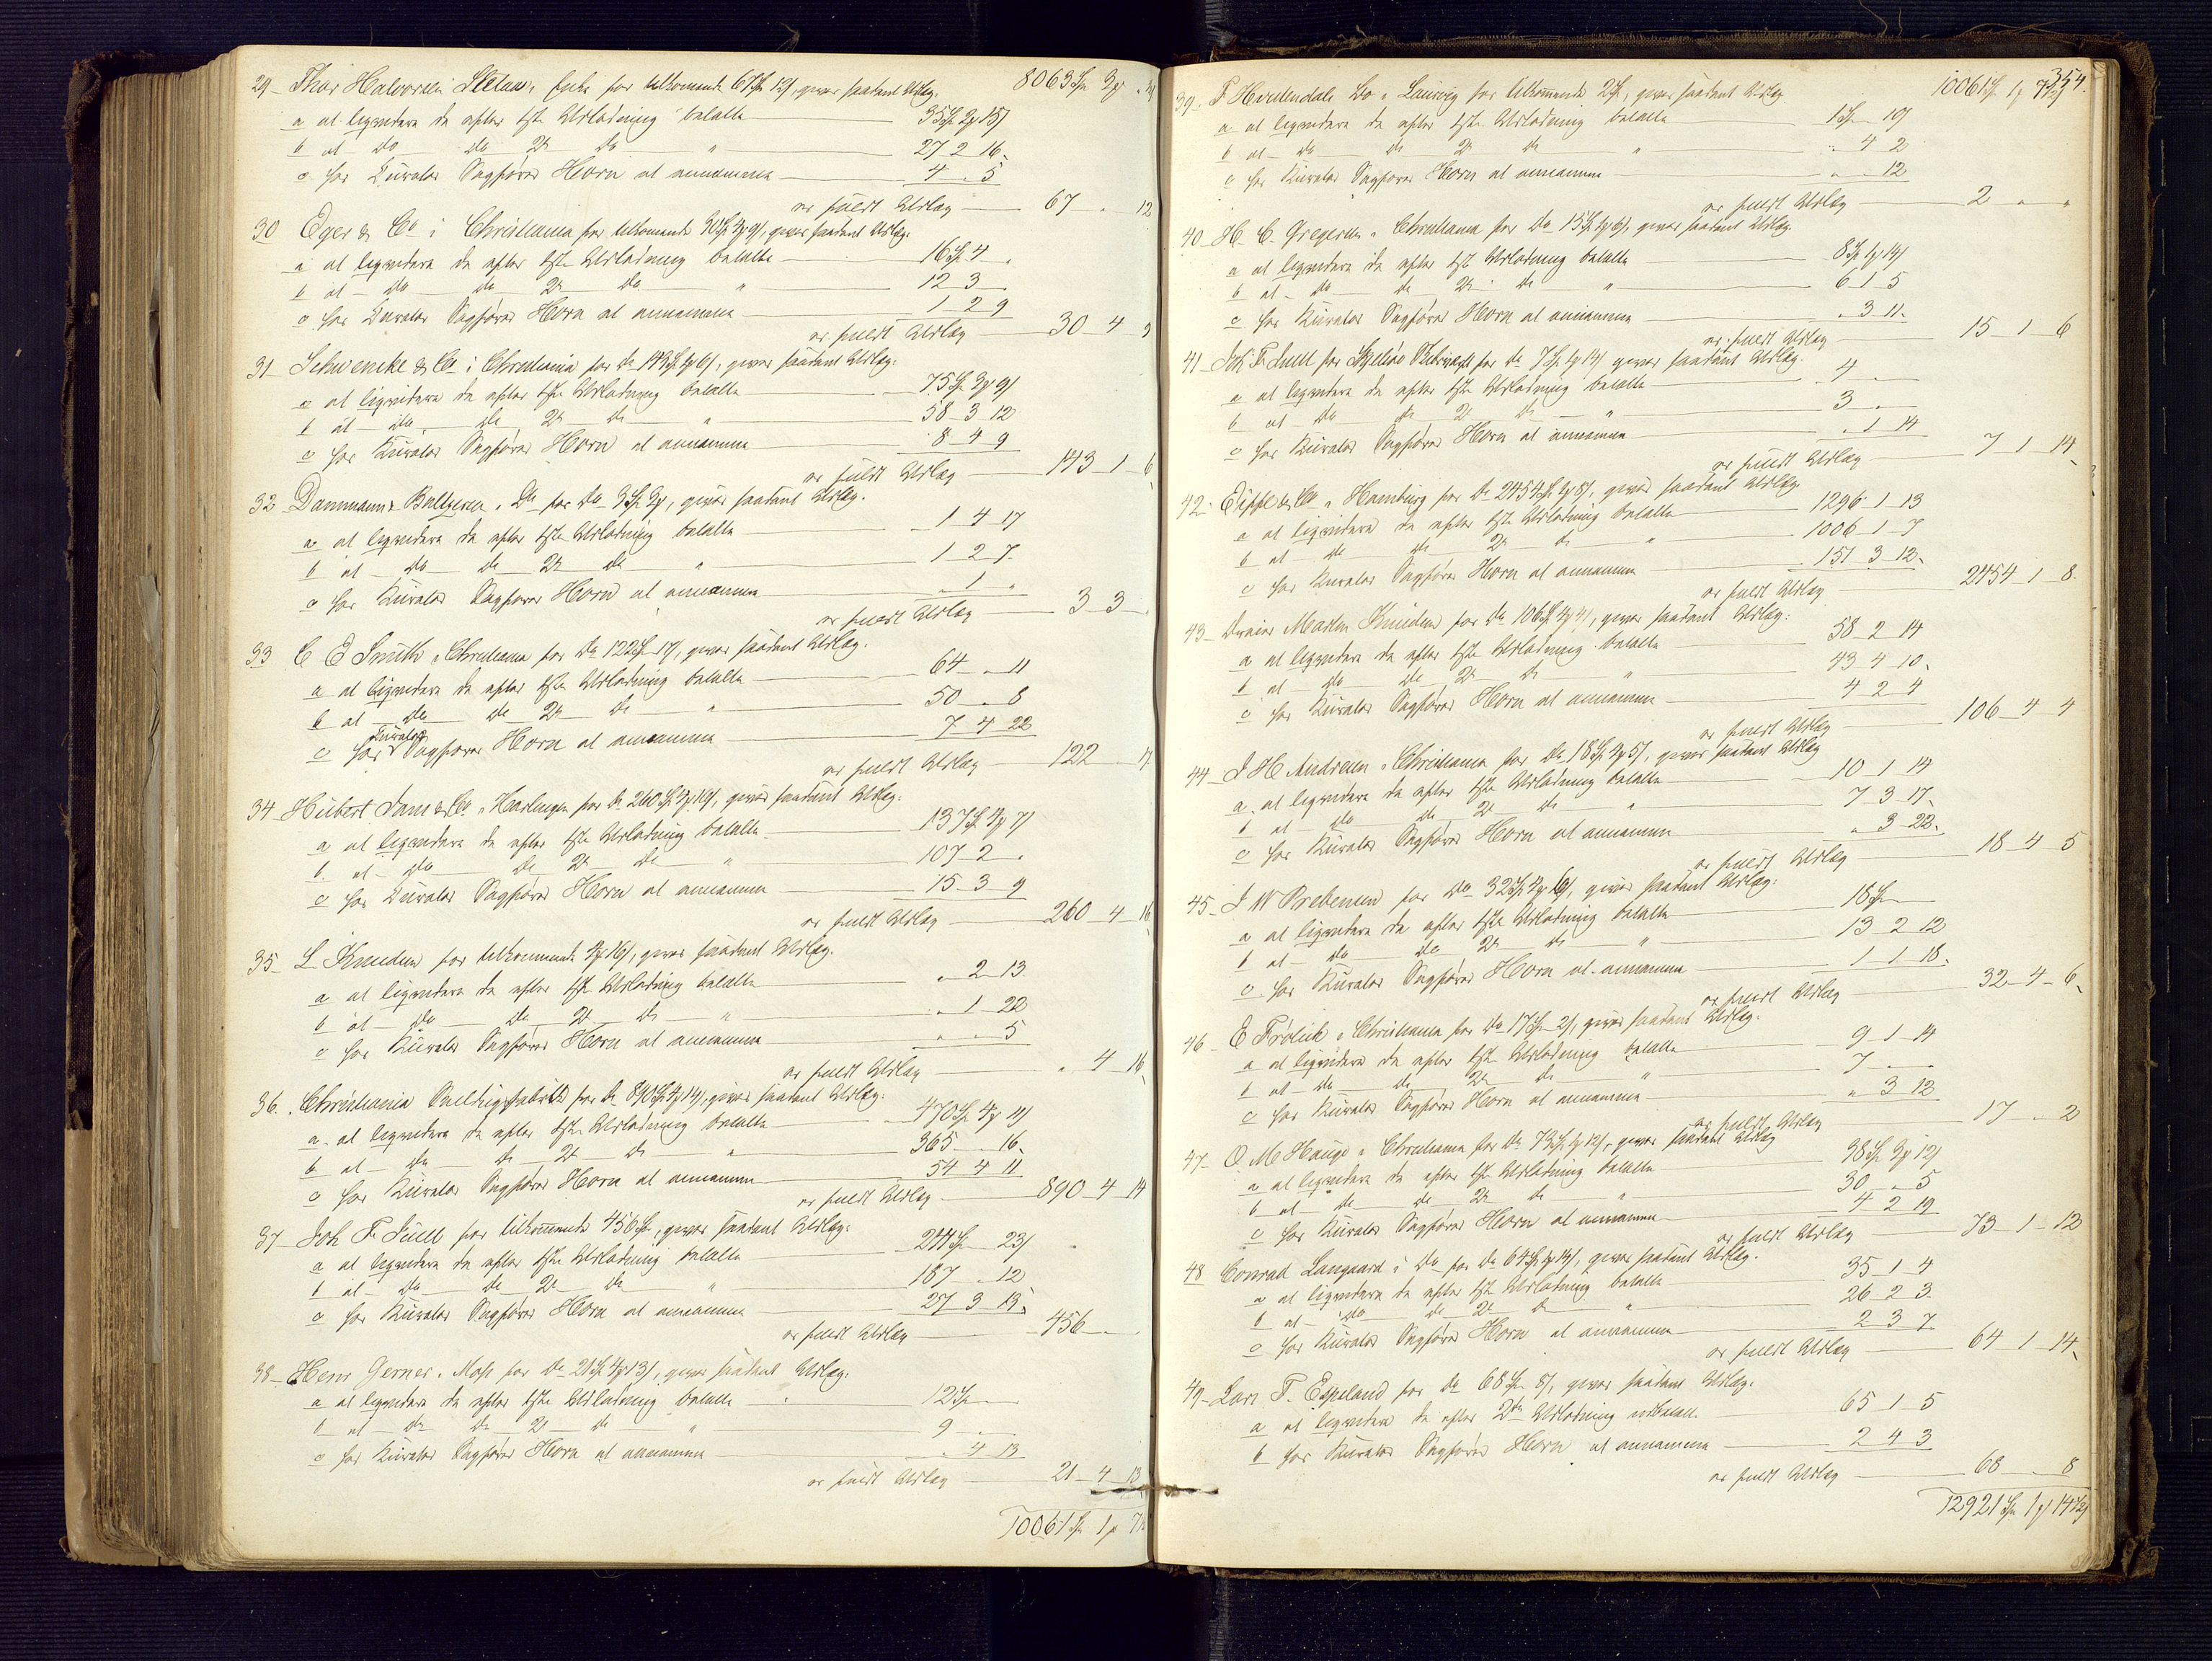 8063 Sp. 3 #
29 Thor Halvorsen for tilkommende 67 Sp. 12 β, gives saadant Udlæg.
a at liqvidere de efter 1ste Udlodning betalte 35 Sp. 2 # 15 β
b at do do 2den do " 27 2 16
c hos Kurator Sagfører Horn at annamme 4 . 5
er fuldt Udlæg 67 . 12
30 Eger & Co i Christiania for tilkommende 30 Sp. 4 # 9 β, gives saadant Udlæg.
a at liqvidere de efter 1ste Udlodning betalte 16 Sp. 4 .
b at do do 2den do " 12 3
c hos Kurator Sagfører Horn at annamme 1 2 9
er fuldt Udlæg 30 4 9
31 Schwencke & Co i Christiania for do 143 Sp. 1 # 6 β, gives saadant Udlæg.
a at liqvidere de efter 1ste Udlodning betalte 75 Sp. 3 # 9 β
b at do do 2den do " 58 3 12
c hos Kurator Sagfører Horn at annamme 8 4 9
er fuldt Udlæg 143 1 6
32 Dannmann Baltzersen do for do 3 Sp. 3 #, gives saadant Udlæg.
a at liqvidere de efter 1ste Udlodning betalte 1 4 17
b at do do 2den do " 1 2 7
c hos Kurator Sagfører Horn at annamme " 1 "
er fuldt Udlæg 3 3
33 C E Smith i Christiania for do 122 Sp. 17 β, gives saadant Udlæg.
a at liqvidere de efter 1ste Udlodning betalte 64 . 11
b at do do 2den do " 50 . 8
c hos Kurator Sagfører Horn at annamme 7 4 22
er fuldt Udlæg 122 17
34 Hubert Jans & Co. i Harlingen for do 260 Sp. 4 # 16 β, gives saadant Udlæg.
a at liqvidere de efter 1ste Udlodning betalte 137 Sp. 4 # 7 β
b at do do 2den do " 107 2 .
c hos Kurator Sagfører Horn at annamme 15 3 9
er fuldt Udlæg 260 4 16
35 L. Knudsen for tilkommende 4 # 16 β, gives saadant Udlæg.
a at liqvidere de efter 1ste Udlodning betalte " 2 13
b at do do 2den do " " 1 22
c hos Kurator Sagfører Horn at annamme " . 5
er fuldt Udlæg " 4 16
36. Christiania for do 890 Sp. 4 # 14 β, gives saadant Udlæg.
a at liqvidere de efter 1ste Udlodning betalte 470 Sp. 4 # 11 β
b at do do 2den do " 365 . 16
c hos Kurator Sagfører Horn at annamme 54 4 11
er fuldt Udlæg 890 4 14
37 Joh. F. Juell for tilkommende 456 Sp., gives saadant Udlæg.
a at liqvidere de efter 1ste Udlodning betalte 241 Sp. 23 β
b at do do 2den do " 187 . 12
c hos Kurator Sagfører Horn at annamme 27 3 13
er fuldt Udlæg 456
38 Henr Gerner i Moss for do 21 Sp. 4 # 13 β, gives saadant Udlæg.
a at liqvidere de efter 1ste Udlodning betalte 12 Sp.
b at do do 2den do " 9
c hos Kurator Sagfører Horn at annamme . 4 13
er fuldt Udlæg 21 4 13
10061 Sp. 1 # 7½
354.
10061 Sp. 1 # 7½ β
39 i Laurvig for tilkommende 2 Sp., gives saadant Udlæg.
a at liqvidere de efter 1ste Udlodning betalte 1 Sp. 10 β
b at do do 2den do " . 4 2
c hos Kurator Sagfører Horn at annamme " . 12
er fuldt Udlæg 2 " "
40 H. C. Gregersen i Christiania for do 15 Sp. 1 # 6 β, gives saadant Udlæg.
a at liqvidere de efter 1ste Udlodning betalte 8 Sp. 1 # 14 β
b at do do 2den do " 6 1 5
c hos Kurator Sagfører Horn at annamme " 3 11
er fuldt Udlæg 15 1 6
41 Joh. F. Juell for for do 7 Sp. 1 # 14 β gives saadant Udlæg.
a at liqvidere de efter 1ste Udlodning betalte 4 .
b at do do 2den do " 3 .
c hos Kurator Sagfører Horn at annamme " 1 14
er fuldt Udlæg 7 1 14
42 Eiffe & Co i Hamburg for do 2454 Sp. 1 # 8 β, gives saadant Udlæg.
a at liqvidere de efter 1ste Udlodning betalte 1296 1 13
b at do do 2den do " 1006 1 7
c hos Kurator Sagfører Horn at annamme 151 3 12
er fuldt Udlæg 2454 1 8
43 Dreier Morten Knudsen for do 106 Sp. 4 # 4 β, gives saadant Udlæg.
a at liqvidere de efter 1ste Udlodning betalte 58 2 14
b at do do 2den do " 43 4 10
c hos Kurator Sagfører Horn at annamme 4 2 4
er fuldt Udlæg 106 4 4
44 J H Andresen i Christiania for do 18 Sp. 4 # 5 β, gives saadant Udlæg
a at liqvidere de efter 1ste Udlodning betalte 10 1 14
b at do do 2den do " 7 3 17
c hos Kurator Sagfører Horn at annamme " 3 22
er fuldt Udlæg 18 4 5
45 J W Prebensen for do 32 Sp. 4 # 6 β, gives saadant Udlæg.
a at liqvidere de efter 1ste Udlodning betalte 18 Sp.
b at do do 2den do " 13 2 12
c hos Kurator Sagfører Horn at annamme 1 1 18
er fuldt Udlæg 32 4 6
46 E Frølich i Christiania for do 17 Sp. 2 β, gives saadant Udlæg.
a at liqvidere de efter 1ste Udlodning betalte 9 1 14
b at do do 2den do " 7 . .
c hos Kurator Sagfører Horn at annamme " 3 12
er fuldt Udlæg 17 . 2
47 O. M. Hauge i Christiania for do 73 Sp. 1 # 12 β, gives saadant Udlæg
a at liqvidere de efter 1ste Udlodning betalte 38 Sp. 3 # 12 β
b at do do 2den do " 30 . 5
c hos Kurator Sagfører Horn at annamme 4 2 19
er fuldt Udlæg 73 1 12
48 Conrad Langaard i do for do 64 Sp. 1 # 14 β, gives saadant Udlæg.
a at liqvidere de efter 1ste Udlodning betalte 35 1 4
b at do do 2den do " 26 2 3
c hos Kurator Sagfører Horn at annamme 2 3 7
er fuldt Udlæg 64 1 14
49 Lars T. Espeland for do 68 Sp. 8 β, gives saadant Udlæg.
a at liqvidere de efter 2den Udlodning udbetalt 65 1 5
b hos Kurator Sagfører Horn at annamme 2 4 3
er fuldt Udlæg 68 . 8
12921 Sp. 1 # 14½ β